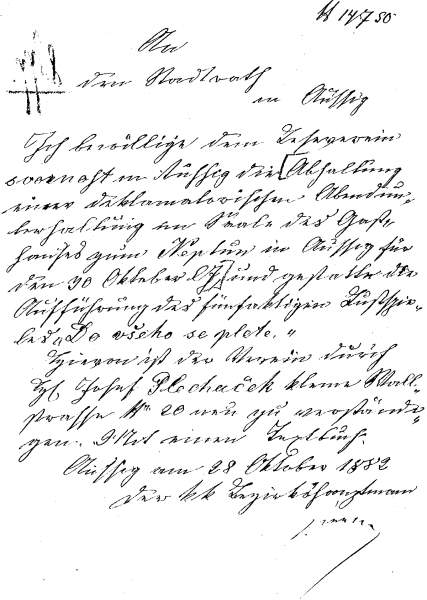 N 14750
An
den Stadtrath
in Aussig
Ich bewillige dem Leseverein
in Aussig die [Abhaltung
einer deklamatorischen Abendun-
terhaltung im Saale des Gast-
hauses zum Neptun in Aussig für
den 30 Oktober l. J.] und gestatte die
Aufführung des fünfaktigen Lustspie-
les „Do všeho se plete.“
Hievon ist der Verein durch
H. Josef Plechaček kleine Wall-
strasse Nr 20 neu zu verständi-
gen. Mit einem Textbuch.
Aussig am 28 Oktober 1882
Der kk Bezirkshauptmann